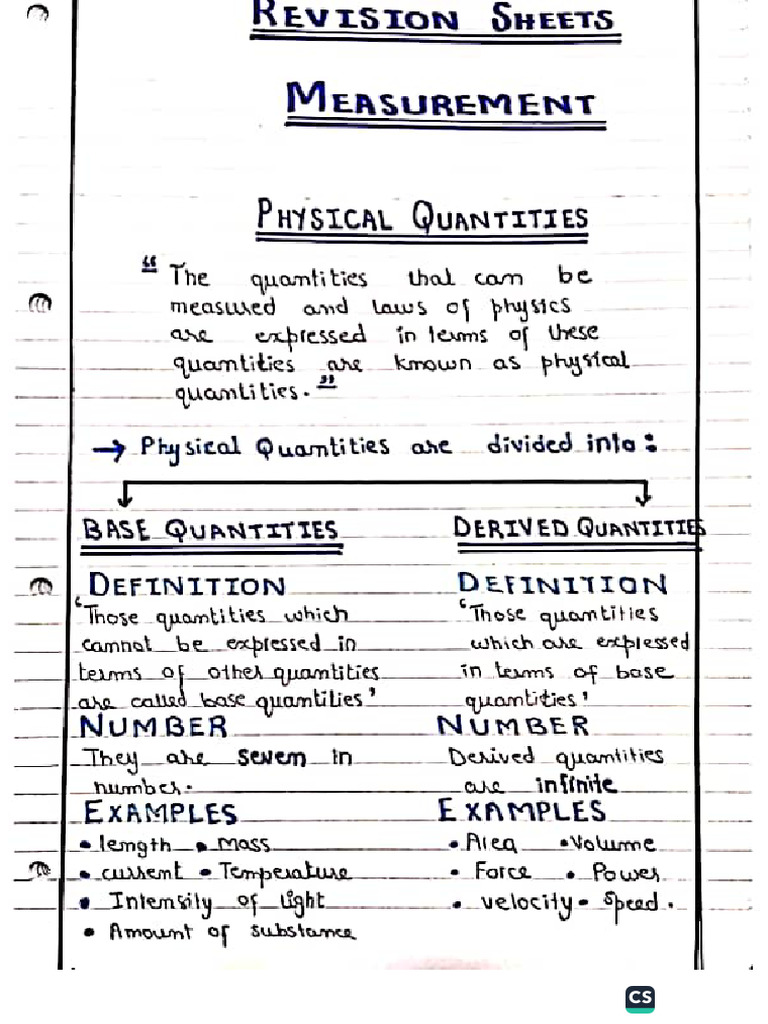 REVISION SHEETS
MEASUREMENT
PHYSICAL QUANTITIES
“ The quantities that can be
measured and laws of physics
are expressed in terms of these
quantities are known as physical
quantities. ”
→ Physical Quantities are divided into:
BASE QUANTITIES
DEFINITION
‘Those quantities which
cannot be expressed in
terms of other quantities
are called base quantities’
NUMBER
They are seven in
number.
EXAMPLES
• length • Mass
• current • Temperature
• Intensity of light
• Amount of substance
DERIVED QUANTITIES
DEFINITION
‘Those quantities
which are expressed
in terms of base
quantities’
NUMBER
Derived quantities
are infinite
EXAMPLES
• Area • Volume
• Force • Power
• velocity • Speed.
CS